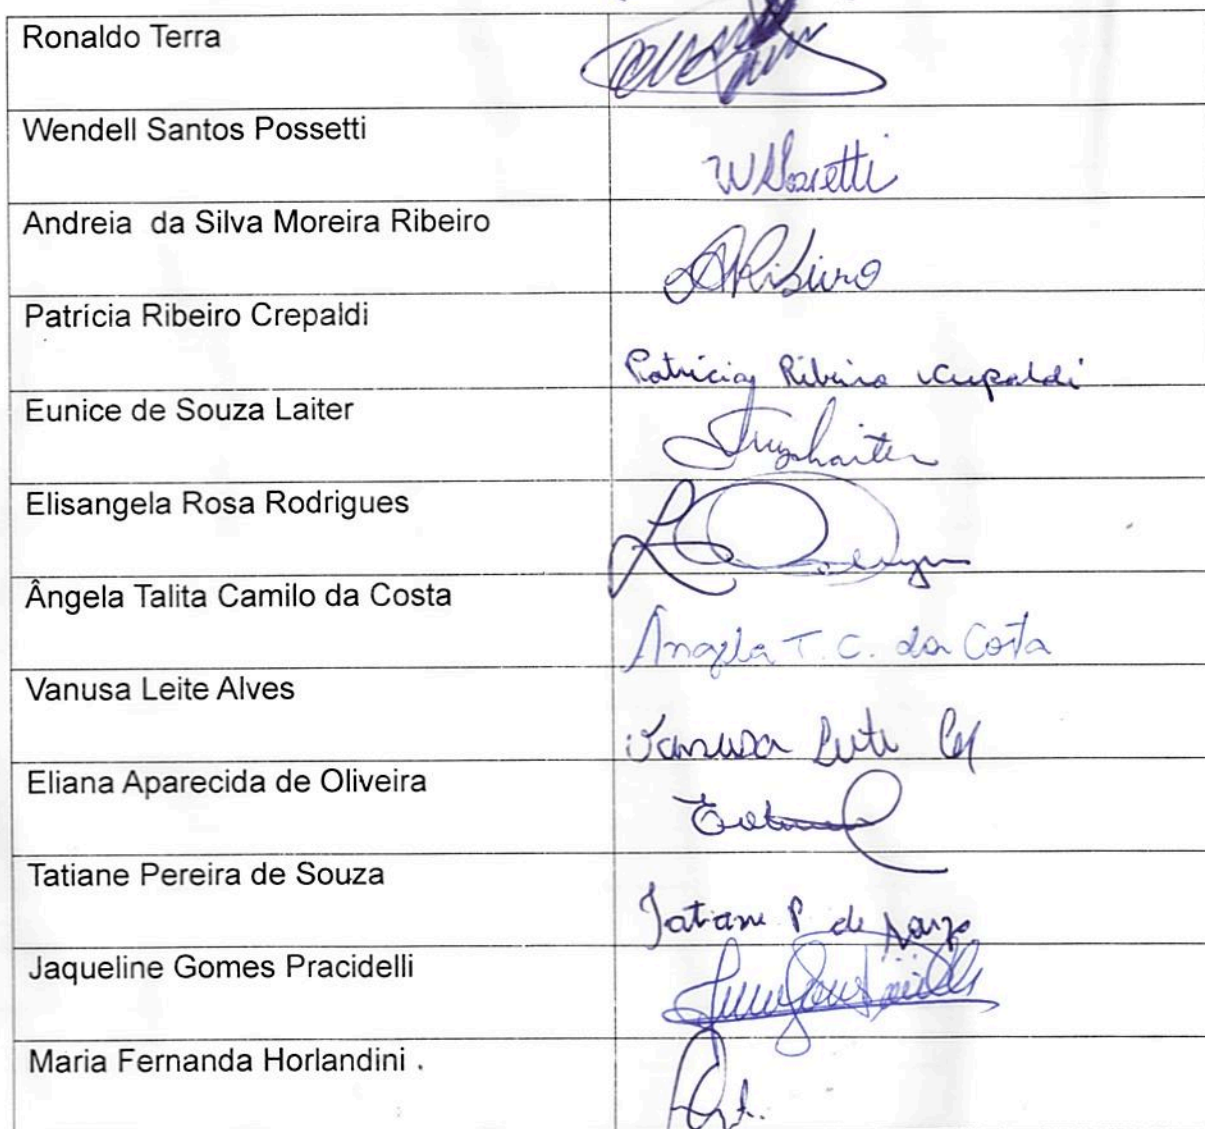 Ronaldo Terra
Wendell Santos Possetti
Andreia da Silva Moreira Ribeiro
ARibeiro
Patrícia Ribeiro Crepaldi
Patricia Ribeiro Crepaldi
Eunice de Souza Laiter
Elisangela Rosa Rodrigues
Ângela Talita Camilo da Costa
Angela T. C. da Costa
Vanusa Leite Alves
Vanusa Leite
Eliana Aparecida de Oliveira
Tatiane Pereira de Souza
Tatiane P. de Souza
Jaqueline Gomes Pracidelli
Maria Fernanda Horlandini .